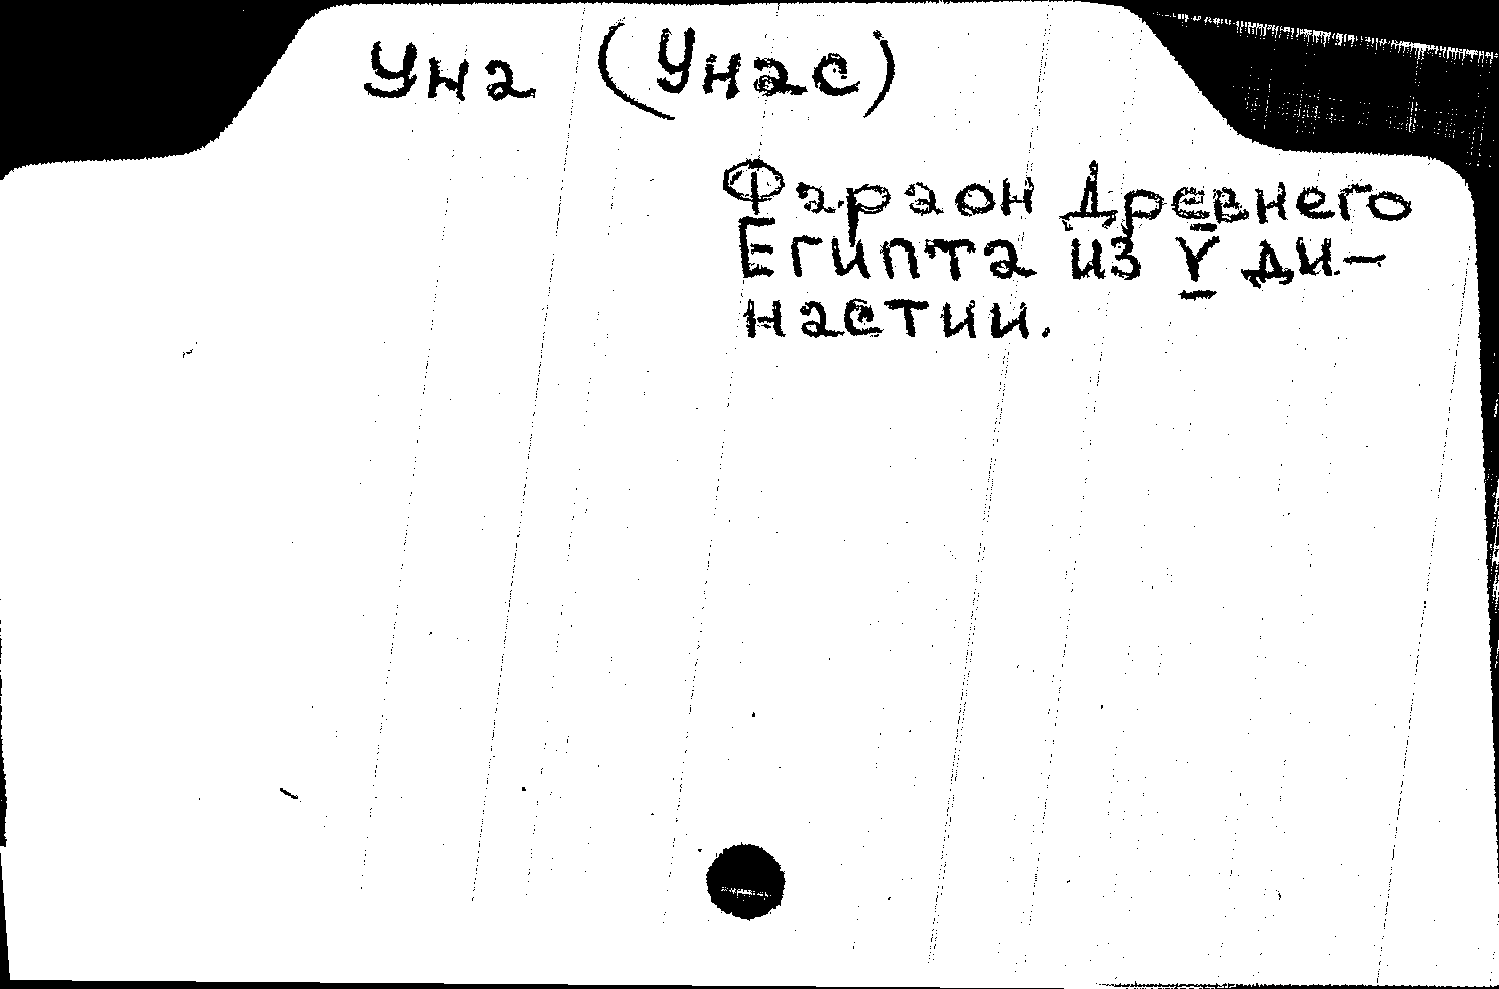 Уна (Унас)
Фараон Древнего
Египта из V ди-
настии.